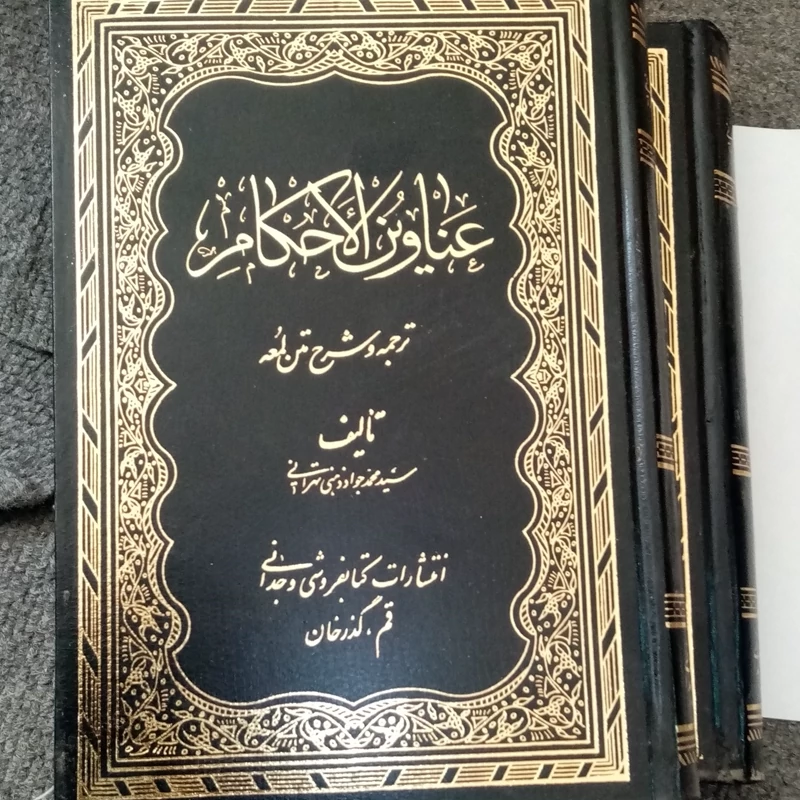 عَناوينُ الأَحكامِ
ترجمه و شرح متن لمعه
تألیف
سیّد محمّد جواد ذهنی تهرانی
انتشارات کتابفروشی وجدانی
قم، گذرخان